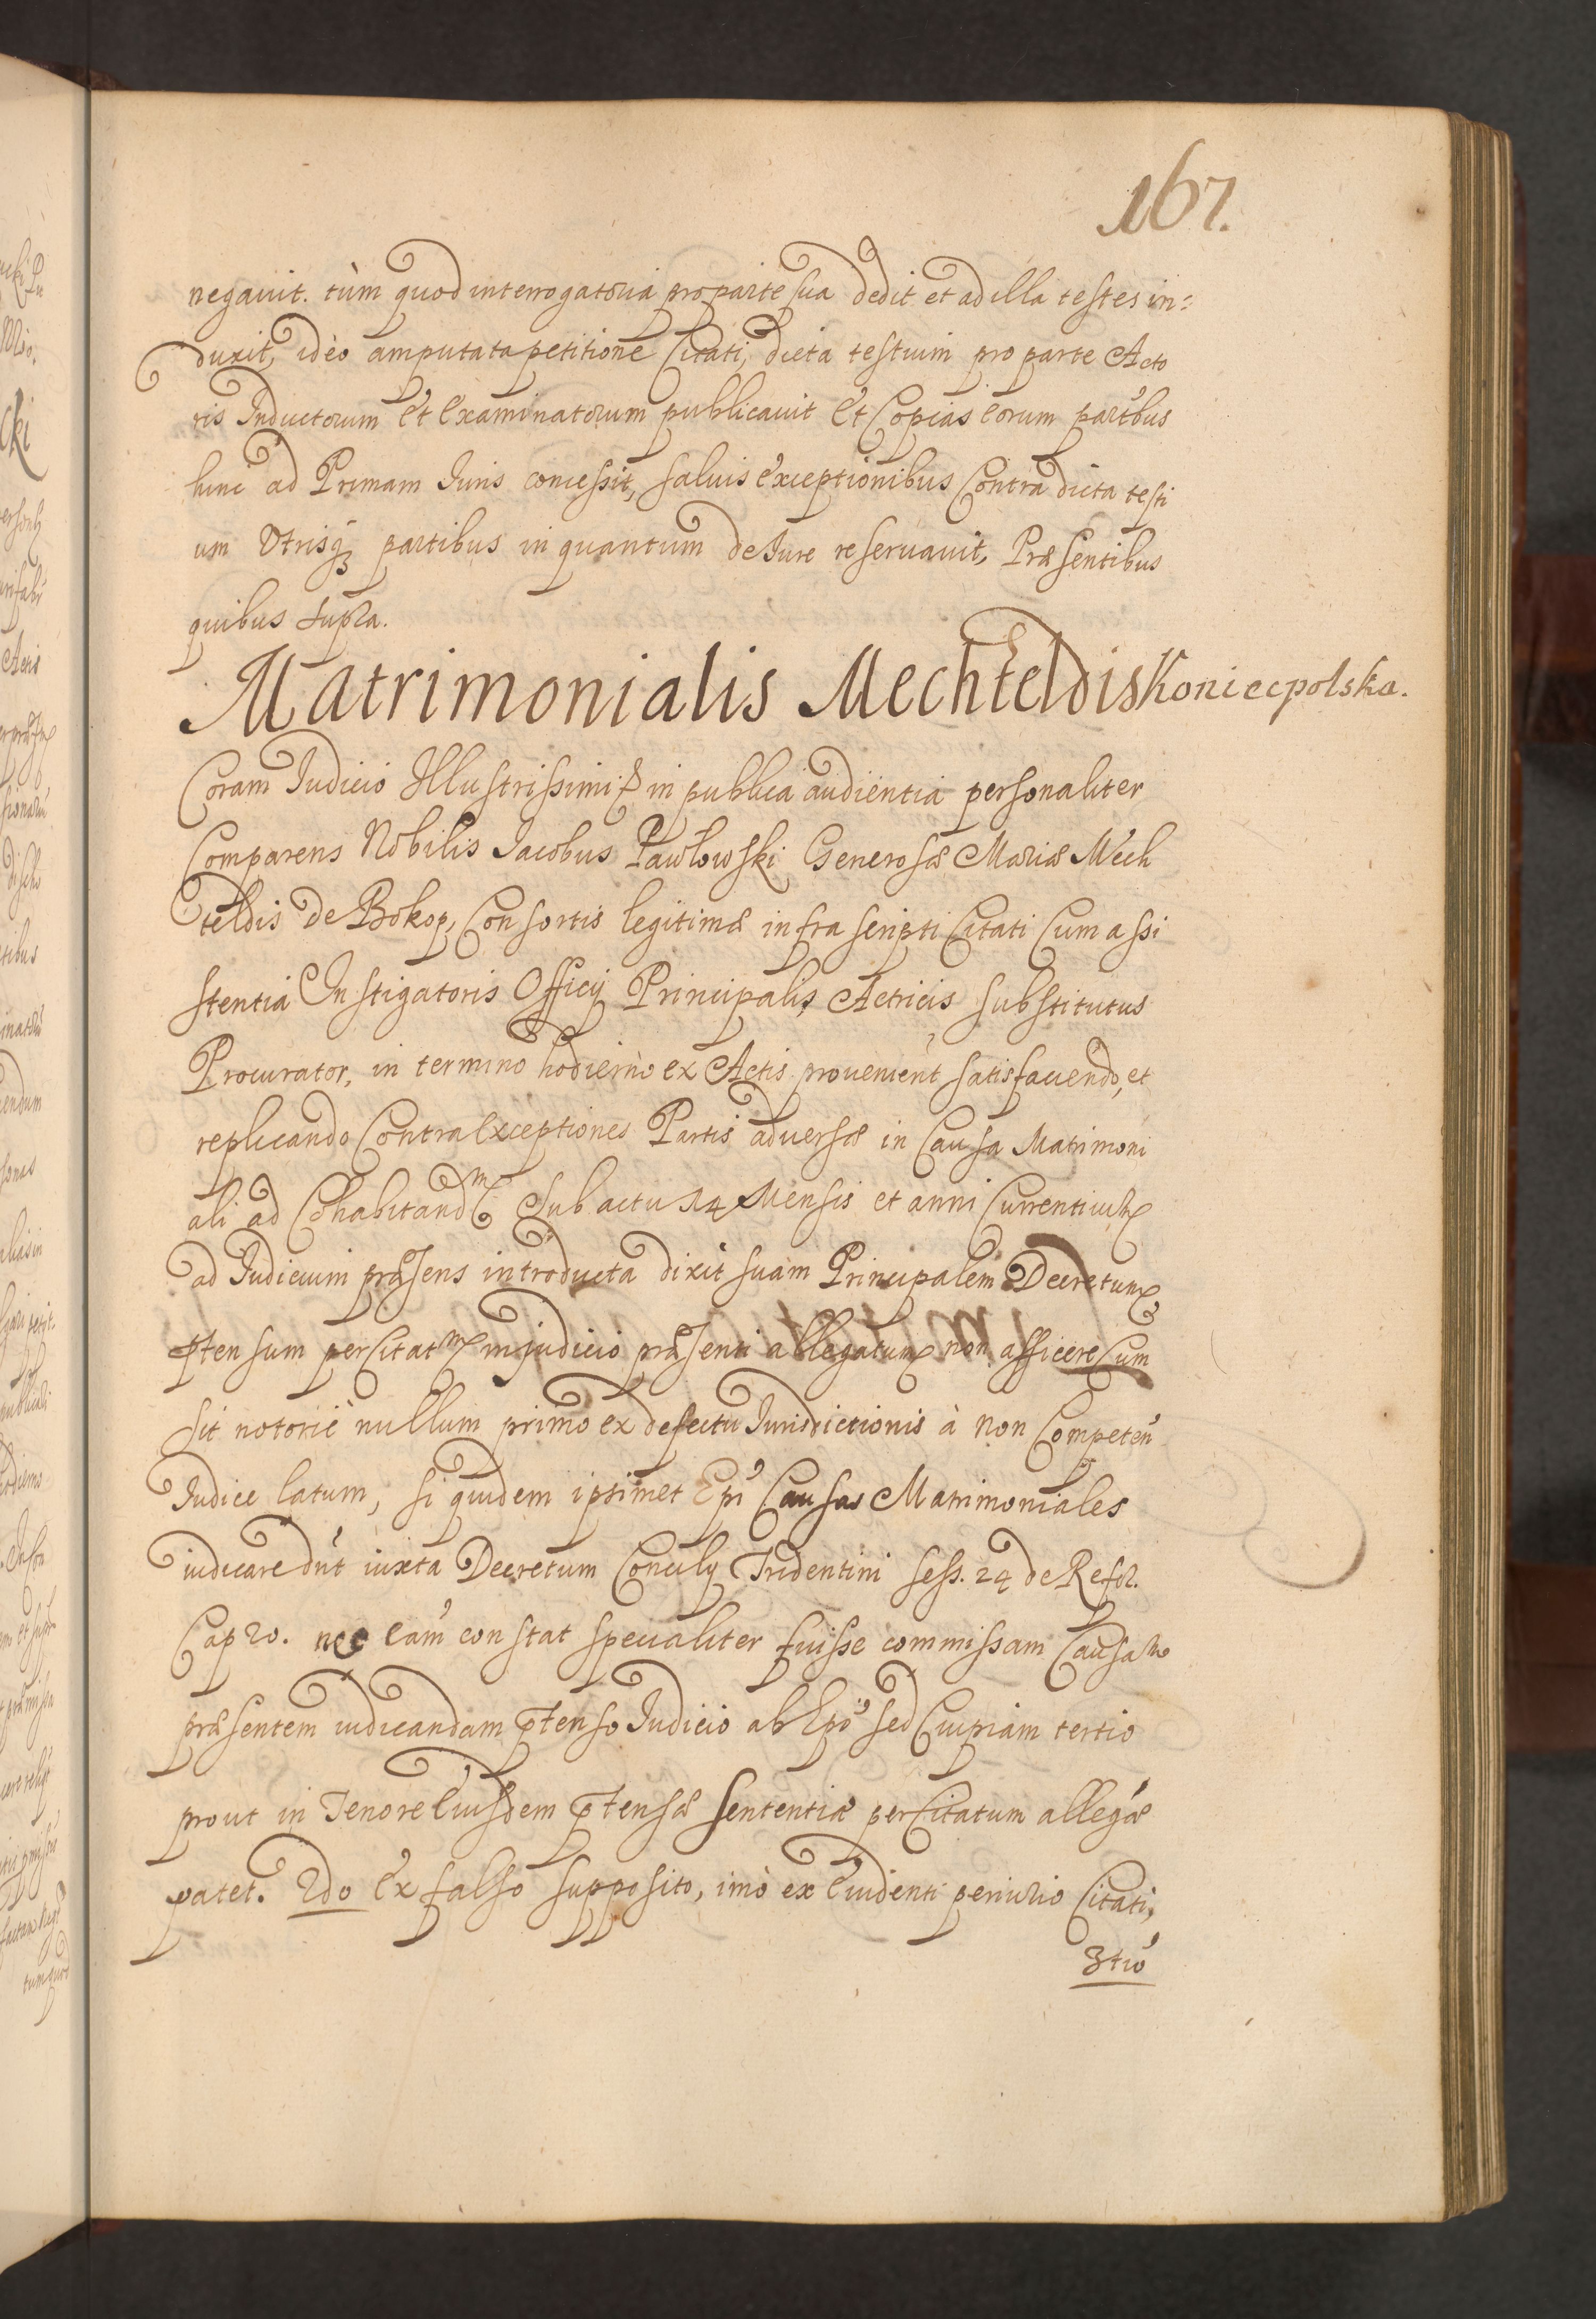 167.
negauit. tùm quod interrogatoria pro parte sua dedit et ad illa testes in=
duxit, ideo amputata petitione Citati, dicta testium pro parte Acto
ris Inductorum Et Examinatorum publicauit Et Copias Eorum partibus
hinc ad Primam Iuris concessit, saluis Exceptionibus Contra dicta testi
um Vtrisq3 partibus in quantum de Iure reseruauit, Præsentibus
quibus supra.
Matrimonialis Mechteldis Koniecpolska.
Coram Iudicio Illustrissimi & in publica audientia personaliter
Comparens Nobilis Jacobus Pawłowski Generosæ Mariæ Mech
teldis de Bokop, Consortis legitimæ infra scripti Citati Cum assi
stentia Instigatoris Officij Principalis Actricis substitutus
Procurator, in termino hodierno ex Actis prouenient̃ satisfaciendo, et
replicando Contra Exceptiones Partis aduersæ in Causa Matrimoni
ali ad Cohabitandm Sub actu 14 Mensis et anni Currentium
ad Iudicium præsens introducta dixit suam Principalem Decretum
ptensum per Citatm in judicio præsenti allegatum non afficere Cum
sit notorie nullum primo ex defectu Iurisdictionis à non Competen̄
Iudice latum, si quidem ipsimet Ep̄i Causas Matrimoniales
iudicare dn̄t iuxta Decretum Concilij Tridentini sess. 24 de Refor.
Cap 20. nec Eam constat specialiter fuisse commissam Causam
præsentem iudicandam ptenso Iudicio ab Ep̄o sed Cuipiam tertio
prout in Tenore Eiusdem ptensæ sententiæ per Citatum allegæ
patet. 2do Ex falso supposito, imò ex Euidenti periurio Citati,
3tio